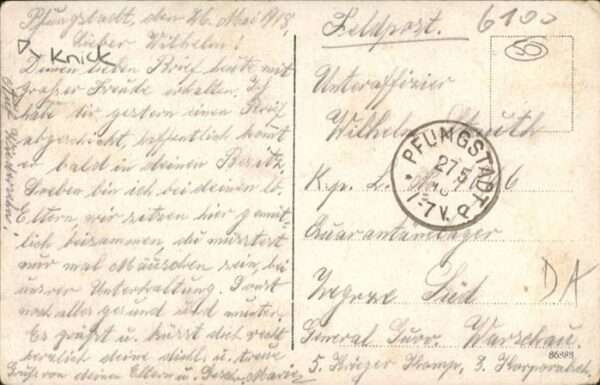 Pfungstadt, den 26. Mai 1918,
Lieber Wilhelm!
Knick
Deinen lieben Brief heute mit
großer Freude erhalten. Ich
habe dir gestern einen Brief
abgeschickt, hoffentlich kommt
er bald in deinen Besitz.
Soeben bin ich bei deinen lb.
Eltern, wir sitzen hier gemüt-
lich beisammen, du müsstest
nur mal Mäuschen sein, bei
unsrer Unterhaltung. Sonst
noch alles gesund und munter.
Es grüßt u. küsst dich recht
herzlich deine dich u. treue
Gruß von deinen Eltern u. Marie
Auf Wiedersehn!
Feldpost.
6100
50
Unteroffizier
Wilhelm
PFUNGSTADT
27 5
7-8 V.
Quarantänelager
Süd
General Gouv. Warschau.
5. Krieger Komp, 3. Korporalsch.
DA
86383